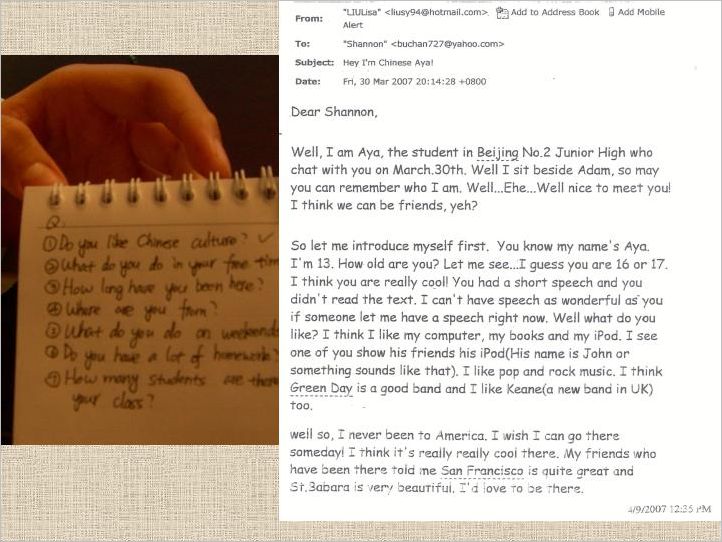 Q:
① Do you like Chinese culture? ✓
② What do you do in your free tim
③ How long have you been here?
④ Where are you from?
⑤ What do you do on weekends
⑥ Do you have a lot of homework?
⑦ How many students are there
your class?
From: "LIULisa" <liusy94@hotmail.com> Add to Address Book Add Mobile
Alert
To: "Shannon" <buchan727@yahoo.com>
Subject: Hey I'm Chinese Aya!
Date: Fri, 30 Mar 2007 20:14:28 +0800
Dear Shannon,
Well, I am Aya, the student in Beijing No.2 Junior High who
chat with you on March.30th. Well I sit beside Adam, so may
you can remember who I am. Well...Ehe...Well nice to meet you!
I think we can be friends, yeh?
So let me introduce myself first. You know my name's Aya.
I'm 13. How old are you? Let me see...I guess you are 16 or 17.
I think you are really cool! You had a short speech and you
didn't read the text. I can't have speech as wonderful as you
if someone let me have a speech right now. Well what do you
like? I think I like my computer, my books and my iPod. I see
one of you show his friends his iPod(His name is John or
something sounds like that). I like pop and rock music. I think
Green Day is a good band and I like Keane(a new band in UK)
too.
well so, I never been to America. I wish I can go there
someday! I think it's really really cool there. My friends who
have been there told me San Francisco is quite great and
St.Babara is very beautiful. I'd love to be there.
4/9/2007 12:35 PM